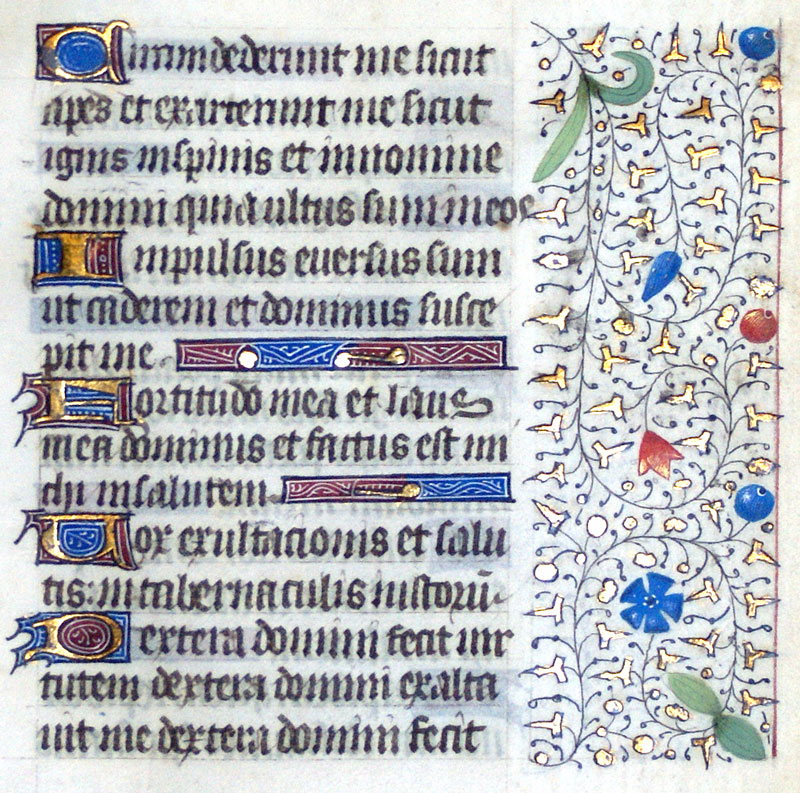 Circumdederunt me sicut
apes et exarcerunt me sicut
ignis in spinis et in nomine
domini quia ultus sum in eos
Impulsus eversus sum
ut caderem et dominus susce
pit me
Fortitudo mea et laus
mea dominus et factus est mi
chi in salutem
Vox exultacionis et salu
tis: in tabernaculis iustorū
Dextera domini fecit vir
tutem dextera domini exalta
vit me dextera domini fecit